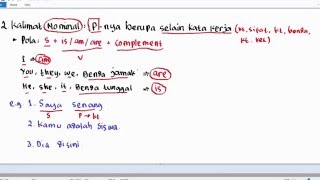 2. Kalimat Nominal : P-nya berupa selain kata kerja (kt. sifat, kt. benda,
kt. ket)
• Pola: S + is/am/are + complement
V
I → am
You, they, we, Benda jamak → are
He, she, it, Benda tunggal → is
e.g. 1. Saya senang
S P → kt
2. Kamu adalah siswa.
3. Dia disini